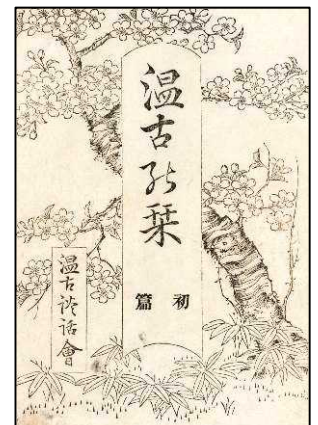 温古能栞
初篇
温古談話會